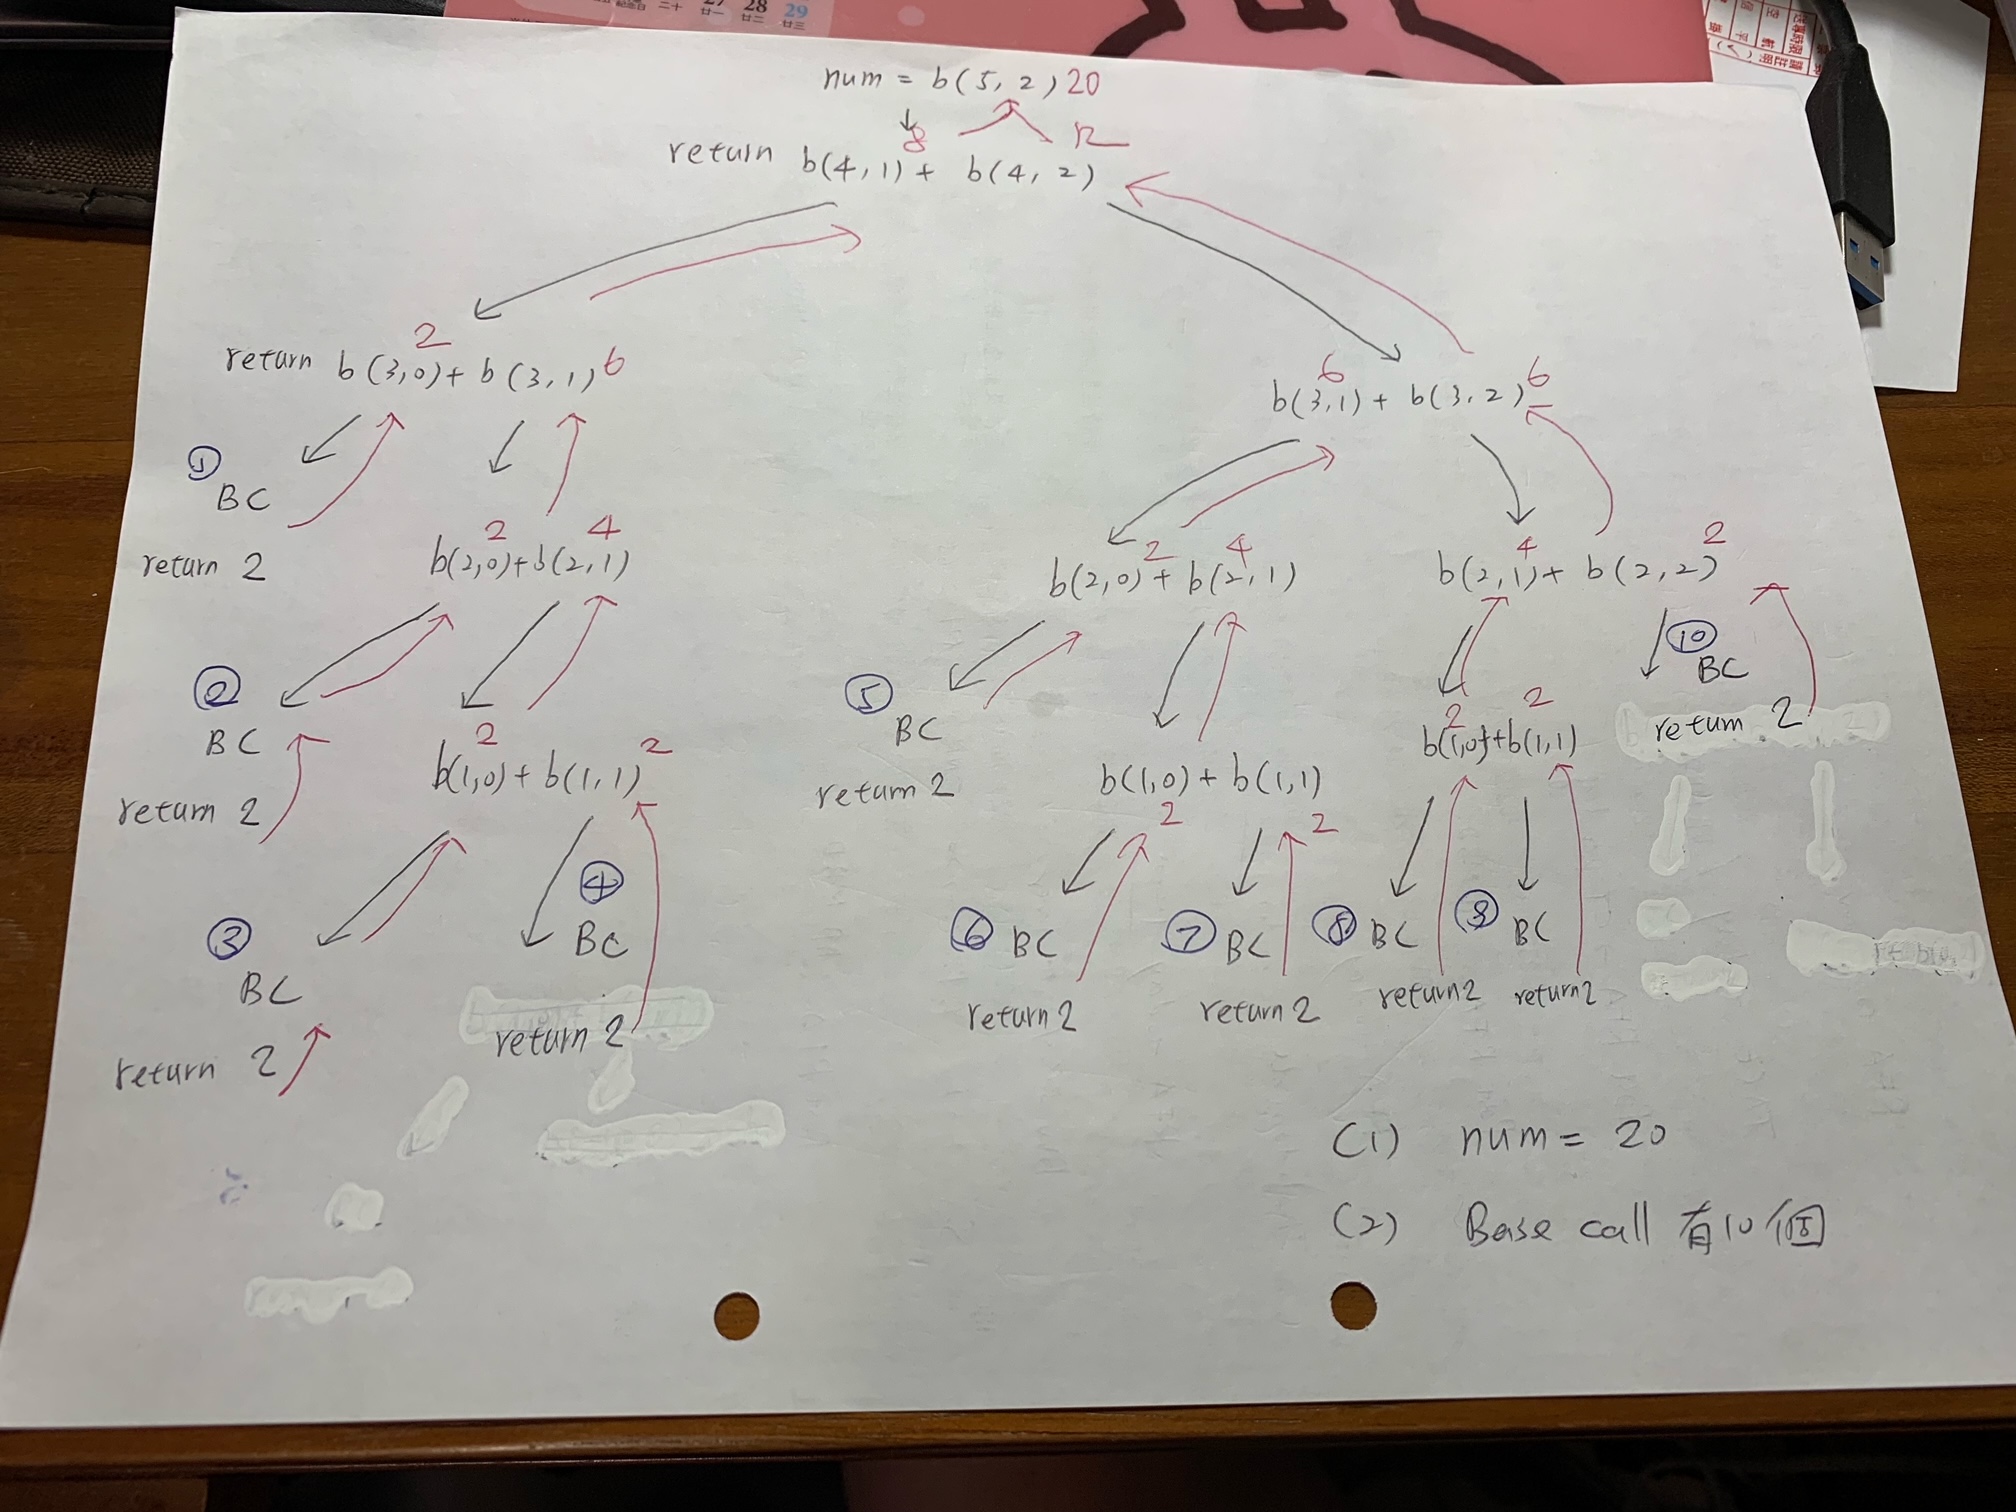 27 28 29
廿一 廿二 廿三
二十
num = b(5, 2) 20
8 12
return b(4, 1) + b(4, 2)
2 6
return b(3,0) + b(3,1)
6 6
b(3,1) + b(3,2)
① BC
return 2
2 4
b(2,0)+b(2,1)
2 4
b(2,0) + b(2,1)
4 2
b(2,1) + b(2,2)
② BC
return 2
2 2
b(1,0) + b(1,1)
⑤ BC
return 2
b(1,0) + b(1,1)
2 2
2 2
b(1,0)+b(1,1)
⑩ BC
return 2
③ BC
return 2
④ BC
return 2
⑥ BC
return 2
⑦ BC
return 2
⑧ BC
return 2
⑨ BC
return 2
(1) num = 20
(2) Base call 有10個